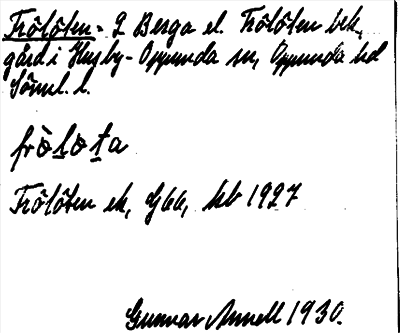 Frölöten - 2 Berga el. Frölöten bek,
gård i Husby-Oppunda sn, Oppunda hd
Söml. l.
frò̱lo̱ṯa
Frölöten ek, G66, kb 1927
Gunnar Annell 1930.